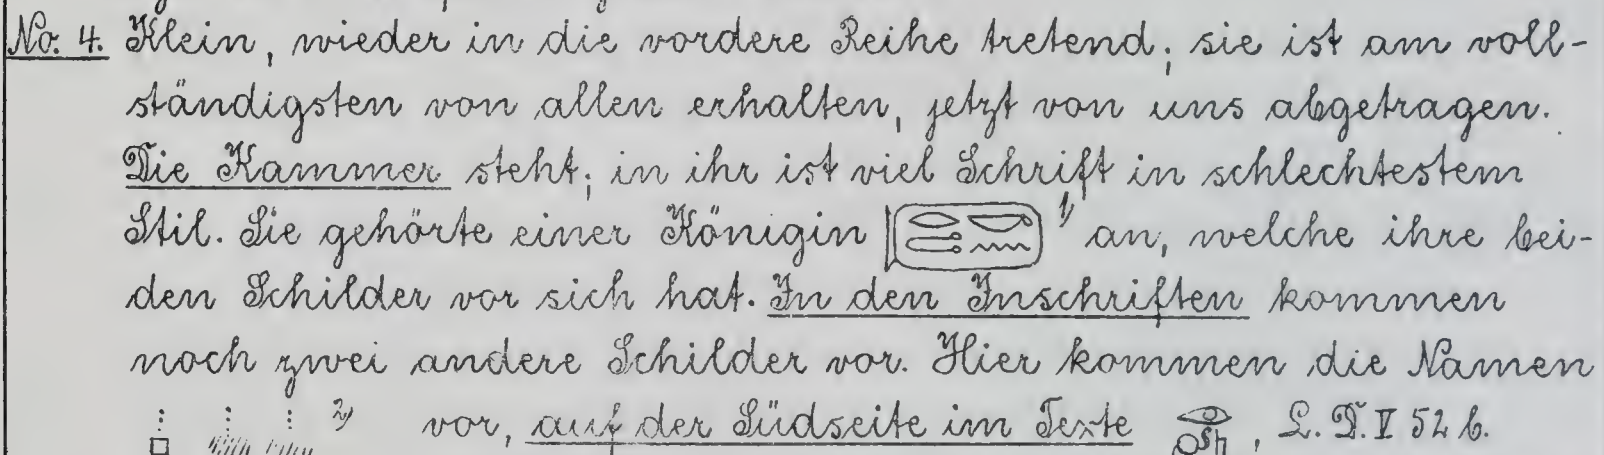 No. 4. Klein, wieder in die vordere Reihe tretend; sie ist am voll-
ständigsten von allen erhalten, jetzt von uns abgetragen.
Die Kammer steht; in ihr ist viel Schrift in schlechtestem
Stil. Sie gehörte einer Königin 1) an, welche ihre bei-
den Schilder vor sich hat. In den Inschriften kommen
noch zwei andere Schilder vor. Hier kommen die Namen
2) vor, auf der Südseite im Texte , L. D. V 52 b.